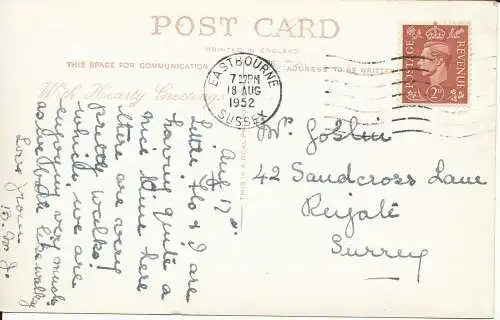 POST CARD
PRINTED IN ENGLAND
THIS SPACE FOR COMMUNICATION
ADDRESS TO BE WRITTEN
With Hearty Greetings
THIS IS A REAL
EASTBOURNE
7 PM
18 AUG
1952
SUSSEX
POSTAGE
REVENUE
2D
Aug 17th
Little Flo & I are
having quite a
nice time here
there are very
pretty walks
which we are
enjoying very much
as we both like walking
Love from
Mr. Joslin
42 Sandcross Lane
Reigate
Surrey